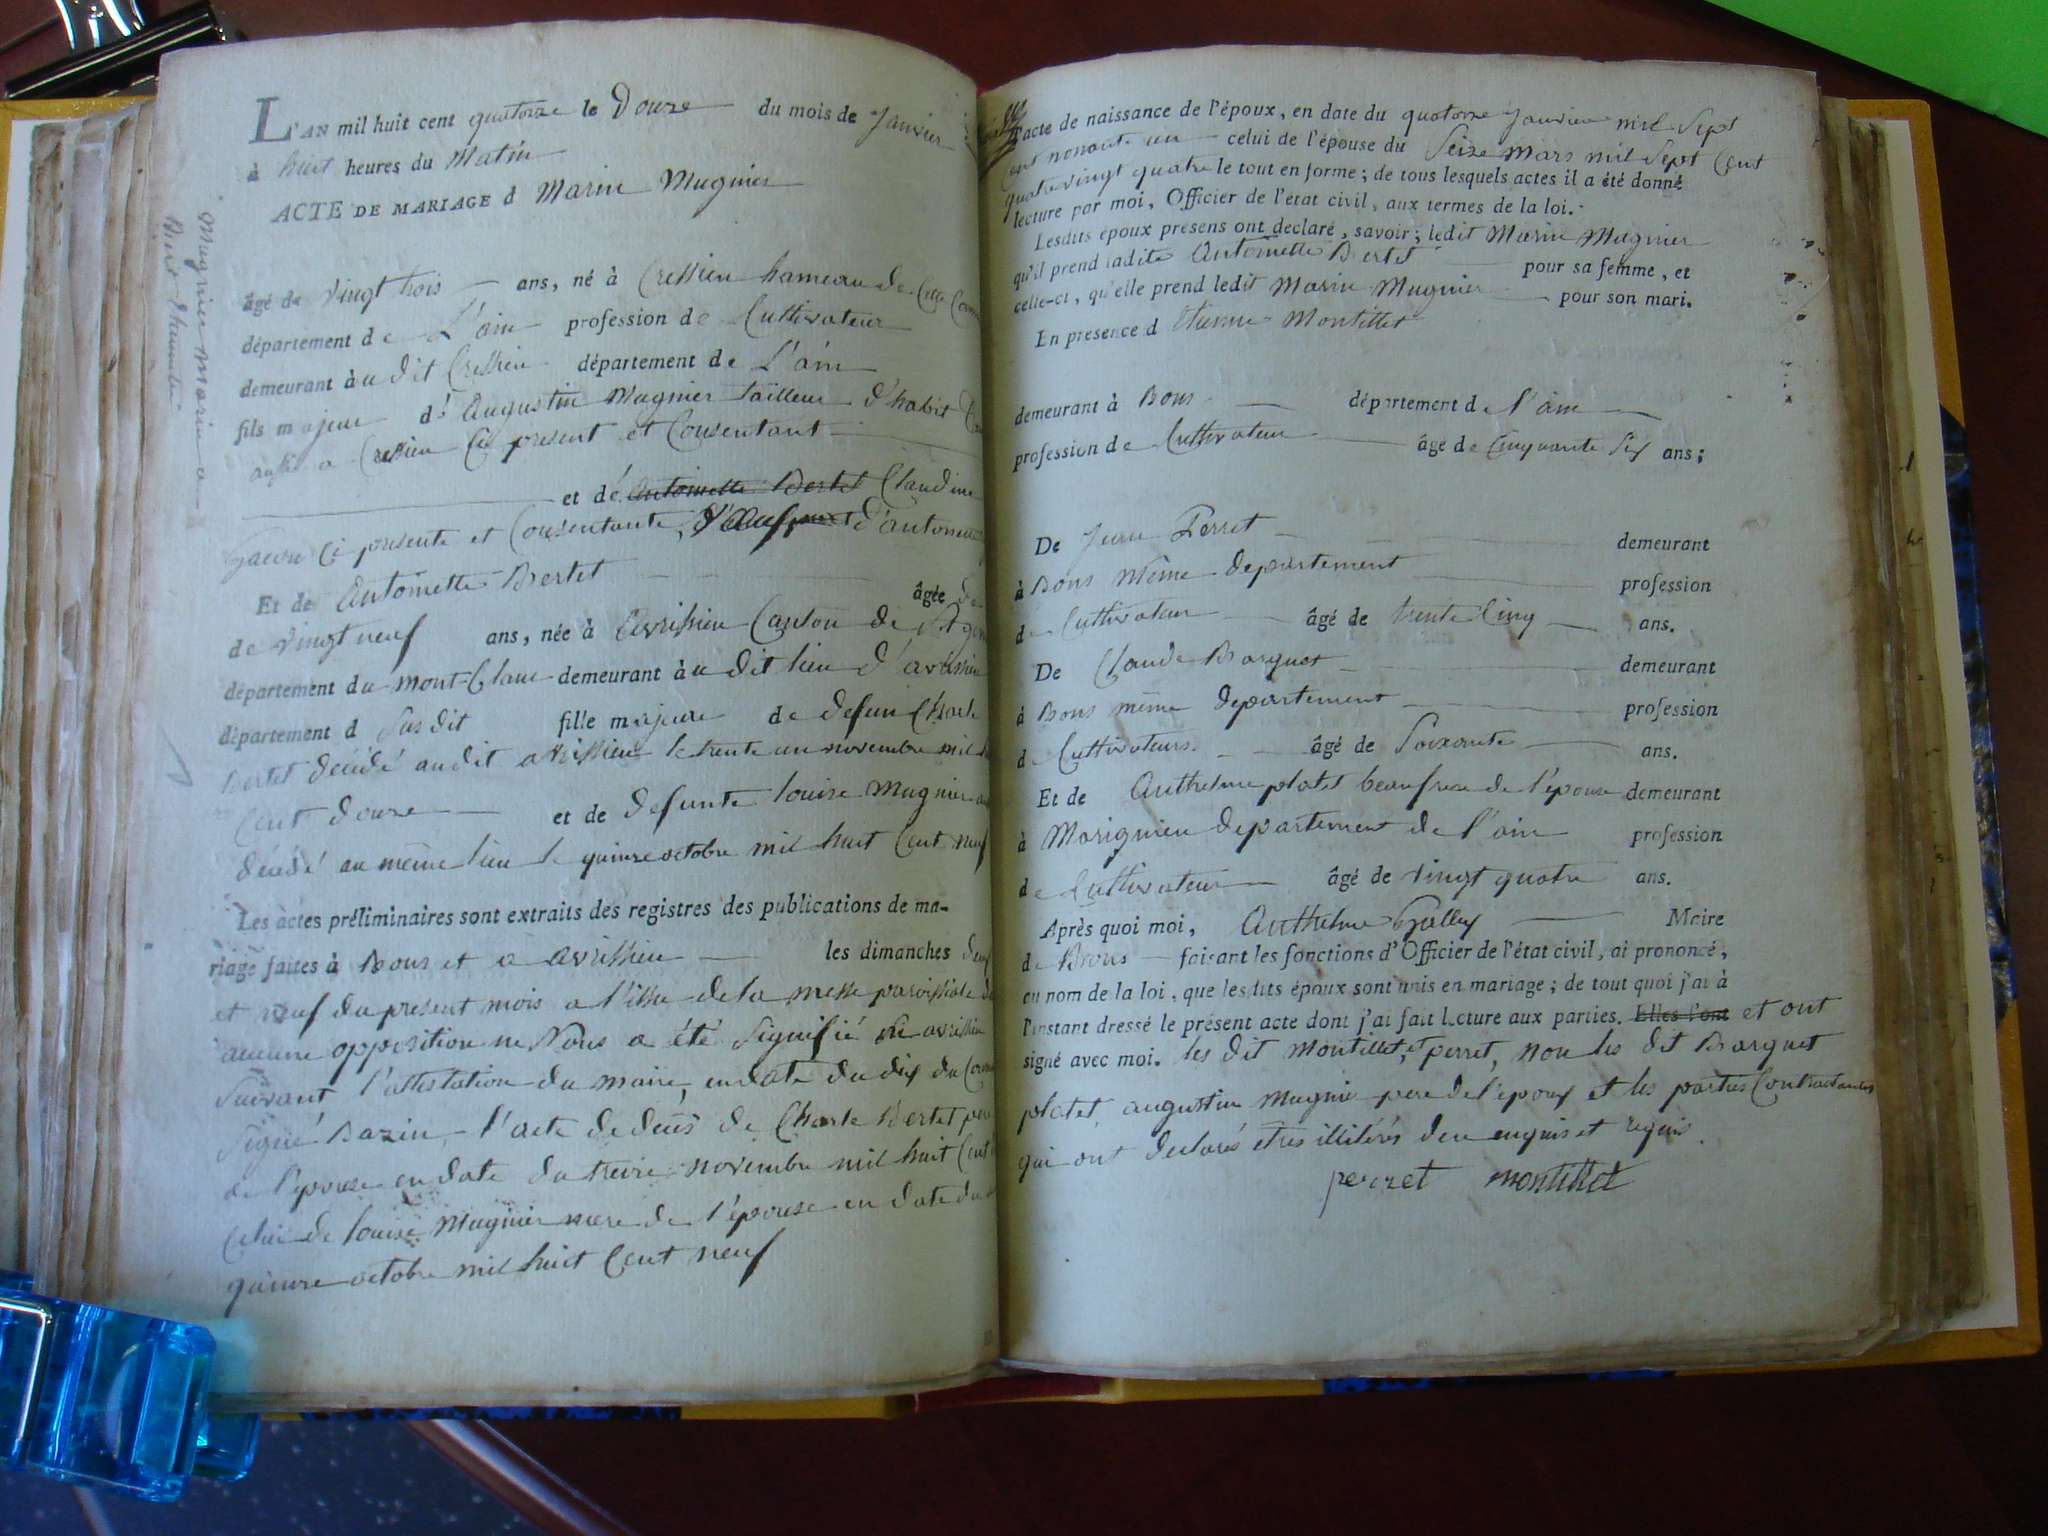 L'AN mil huit cent quatorze le Douze du mois de Janvier
à huit heures du Matin
ACTE DE MARIAGE d Marin Mugnier
Mugnier Marin
âgé de vingt trois ans, né à Cressieu hameau de Cette
département de L'ain profession de Cultivateur
demeurant à u dit Cressieu département de L'ain
fils majeur d' Augustin Mugnier tailleur d'habit
a Cressieu Ci present et Consentant
et de Antoinette Bertet Claudine
Ci presente et Consentante, d'
Et de Antoinette Bertet
âgée de
de vingt neuf ans, née à avrissieu Canton de
département du mont-Blanc demeurant à u dit lieu d'avrissieu
département d Susdit fille majeure de defun Charle
bertet décédé audit avrissieu le trente un novembre mil
Cent douze et de defunte louise Mugnier
décédé au même lieu le quinze octobre mil huit Cent neuf
Les actes préliminaires sont extraits des registres des publications de ma-
riage faites à Bons et a avrissieu les dimanches deux
et neuf du present mois a l'issue de la messe paroissiale
aucune opposition ne Nous a été Signifié ni avrissieu
Suivant l'attestation du maire, en date du dix du
Signé Bazin, l'acte de décès de Charle Bertet père
de l'épouse en date du treize novembre mil huit Cent
Celui de louise Mugnier mere de l'épouse en date du
quinze octobre mil huit Cent neuf
l'acte de naissance de l'époux, en date du quatorze Janvier mil Sept
Cent nonante un celui de l'épouse du Seize mars mil Sept Cent
quatrevingt quatre le tout en forme; de tous lesquels actes il a été donné
lecture par moi, Officier de l'état civil, aux termes de la loi.
Lesdits époux présens ont déclaré, savoir; ledit Marin Mugnier
qu'il prend ladite Antoinette Bertet pour sa femme, et
celle-ci, qu'elle prend ledit Marin Mugnier pour son mari.
En présence d Etienne Montillet
demeurant à Bons département de l'ain
profession de Cultivateur âgé de Cinquante Six ans;
De Jean Perret demeurant
à Bons même departement profession
de Cultivateur âgé de trente Cinq ans.
De Claude Barquet demeurant
à Bons même departement profession
de Cultivateurs âgé de Soixante ans.
Et de Anthelme platet beaufrere de l'épouse demeurant
à Marignieu departement de l'ain profession
de Cultivateur âgé de vingt quatre ans.
Après quoi moi, Anthelme Gallay Maire
de Bons faisant les fonctions d'Officier de l'état civil, ai prononcé,
au nom de la loi, que lesdits époux sont unis en mariage; de tout quoi j'ai à
l'instant dressé le présent acte dont j'ai fait lecture aux parties. Elles l'ont et ont
signé avec moi. les dit Montillet, et perret, non les dit Barquet
platet, augustin Mugnier pere de l'époux et les parties Contractantes
qui ont déclarés etres illitérés de ce enquis et requis.
perret montillet